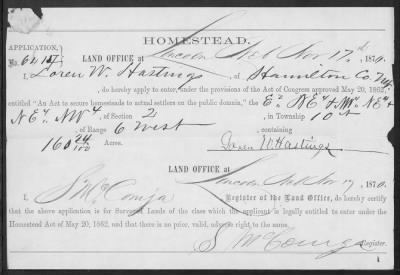 HOMESTEAD.
APPLICATION,
No. 6417
LAND OFFICE at Lincoln Neb Nov 17th 1870.
I, Loren W. Hastings, of Hamilton Co Neb
do hereby apply to enter, under the provisions of the Act of Congress approved May 20, 1862,
entitled "An Act to secure homesteads to actual settlers on the public domain," the E½ NE¼ & NW¼ NE¼ &
NE¼ NW¼ of Section 2 in Township 10 N
of Range 6 West, containing
160 24/100 Loren W Hastings
LAND OFFICE at Lincoln Neb Nov 17, 1870.
I, S McConiga Register of the Land Office, do hereby certify
that the above application is for Surveyed Lands of the class which the applicant is legally entitled to enter under the
Homestead Act of May 20, 1862, and that there is no prior, valid, adverse right to the same.
S. McConiga
Register.